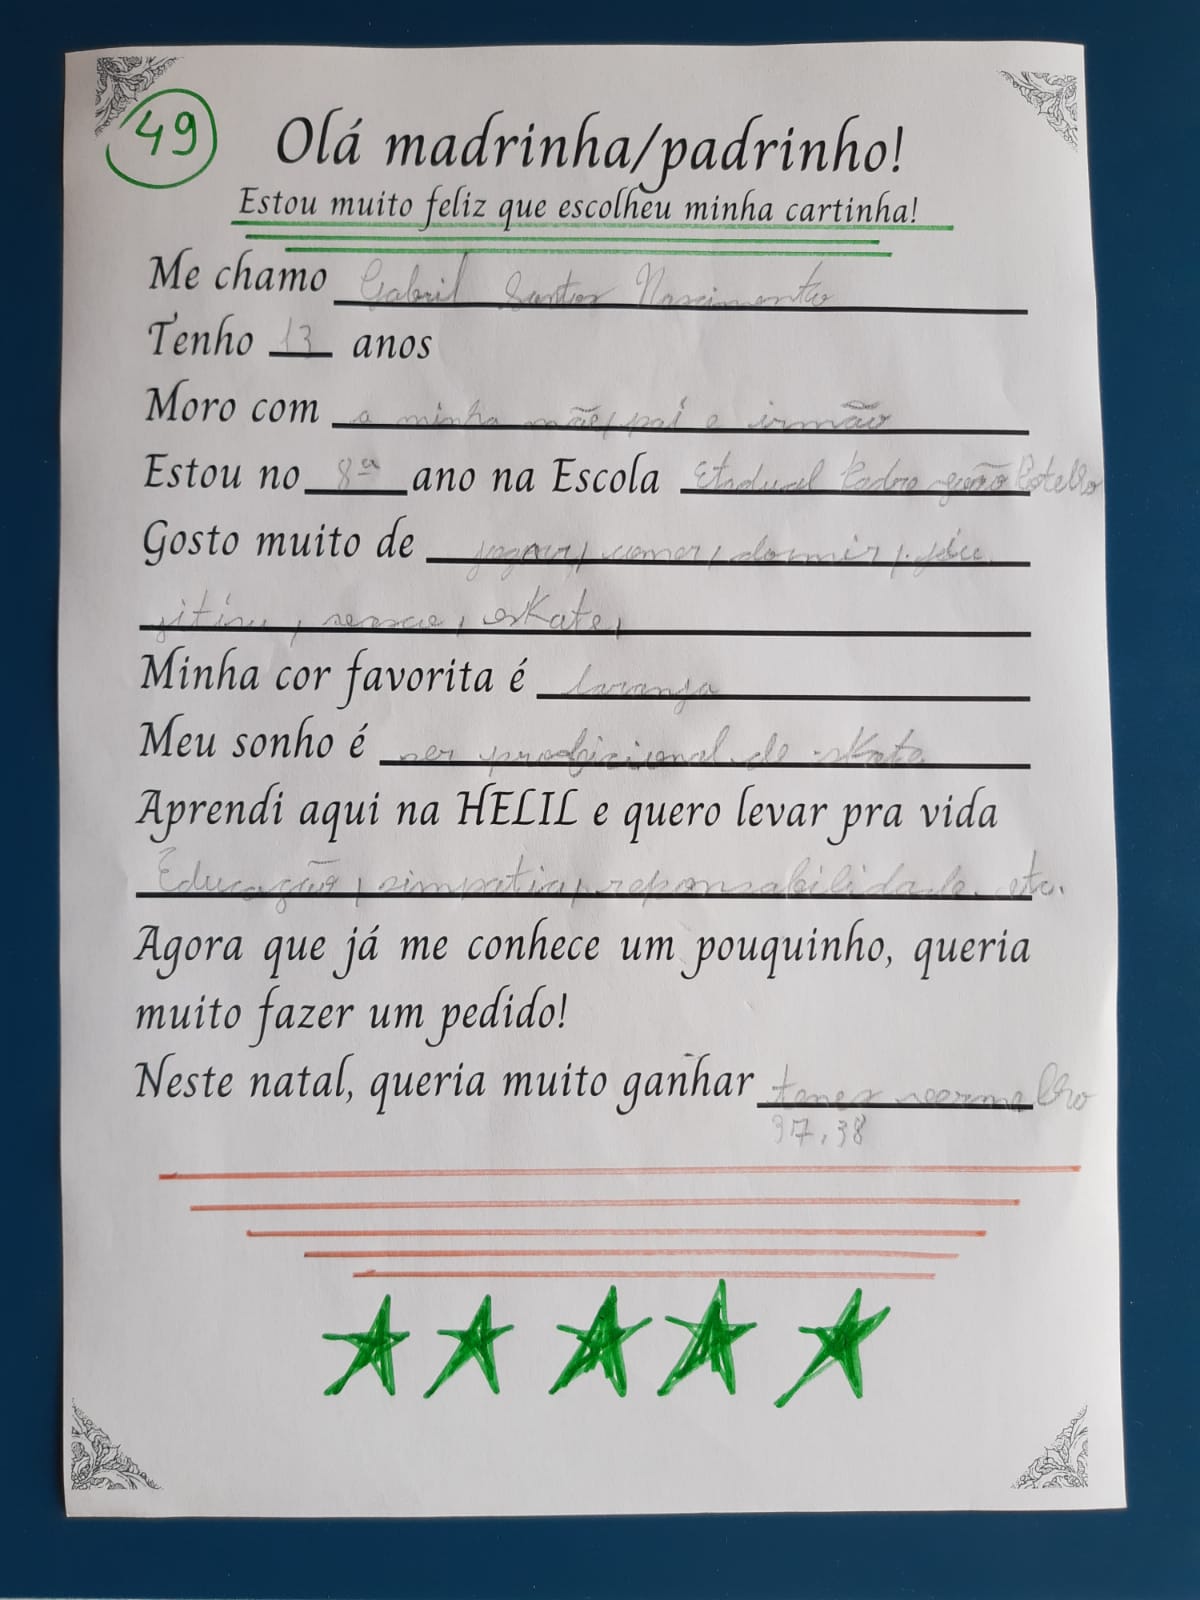 49
Olá madrinha/padrinho!
Estou muito feliz que escolheu minha cartinha!
Me chamo Gabril Santos Nascimento
Tenho 13 anos
Moro com a minha mãe, pai e irmão
Estou no 8ª ano na Escola Etadual Padre
Gosto muito de jogar, comer, dormir,
skate,
Minha cor favorita é laranja
Meu sonho é ser de skate
Aprendi aqui na HELIL e quero levar pra vida
Educação, simpatia, reponsabilidade. etc.
Agora que já me conhece um pouquinho, queria
muito fazer um pedido!
Neste natal, queria muito ganhar tenes vermelho
37, 38